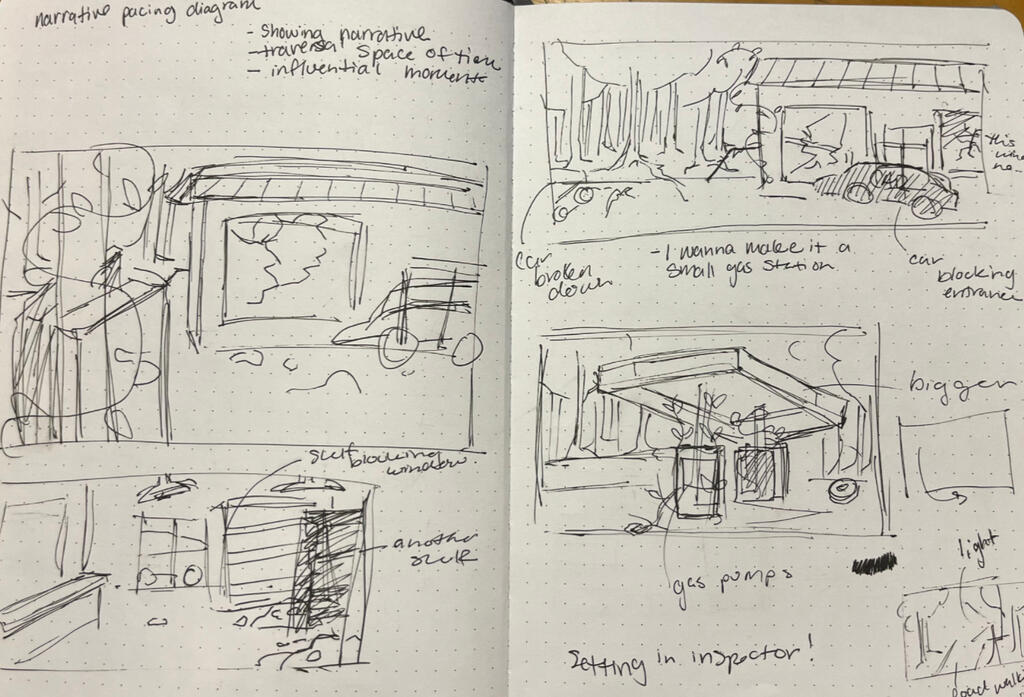 narrative pacing diagram
- showing narrative
- traversal space of time
- influential moments
shelf blocking
window
another
shelf
car
broken
down
- I wanna make it a
small gas station.
car
blocking
entrance
this
bigger
gas pumps
light
setting in inspector!